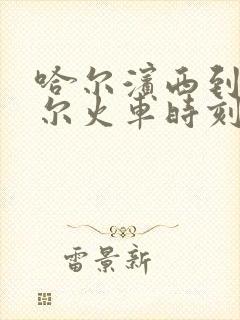 哈尔滨西到
尔火车时刻
雷景新